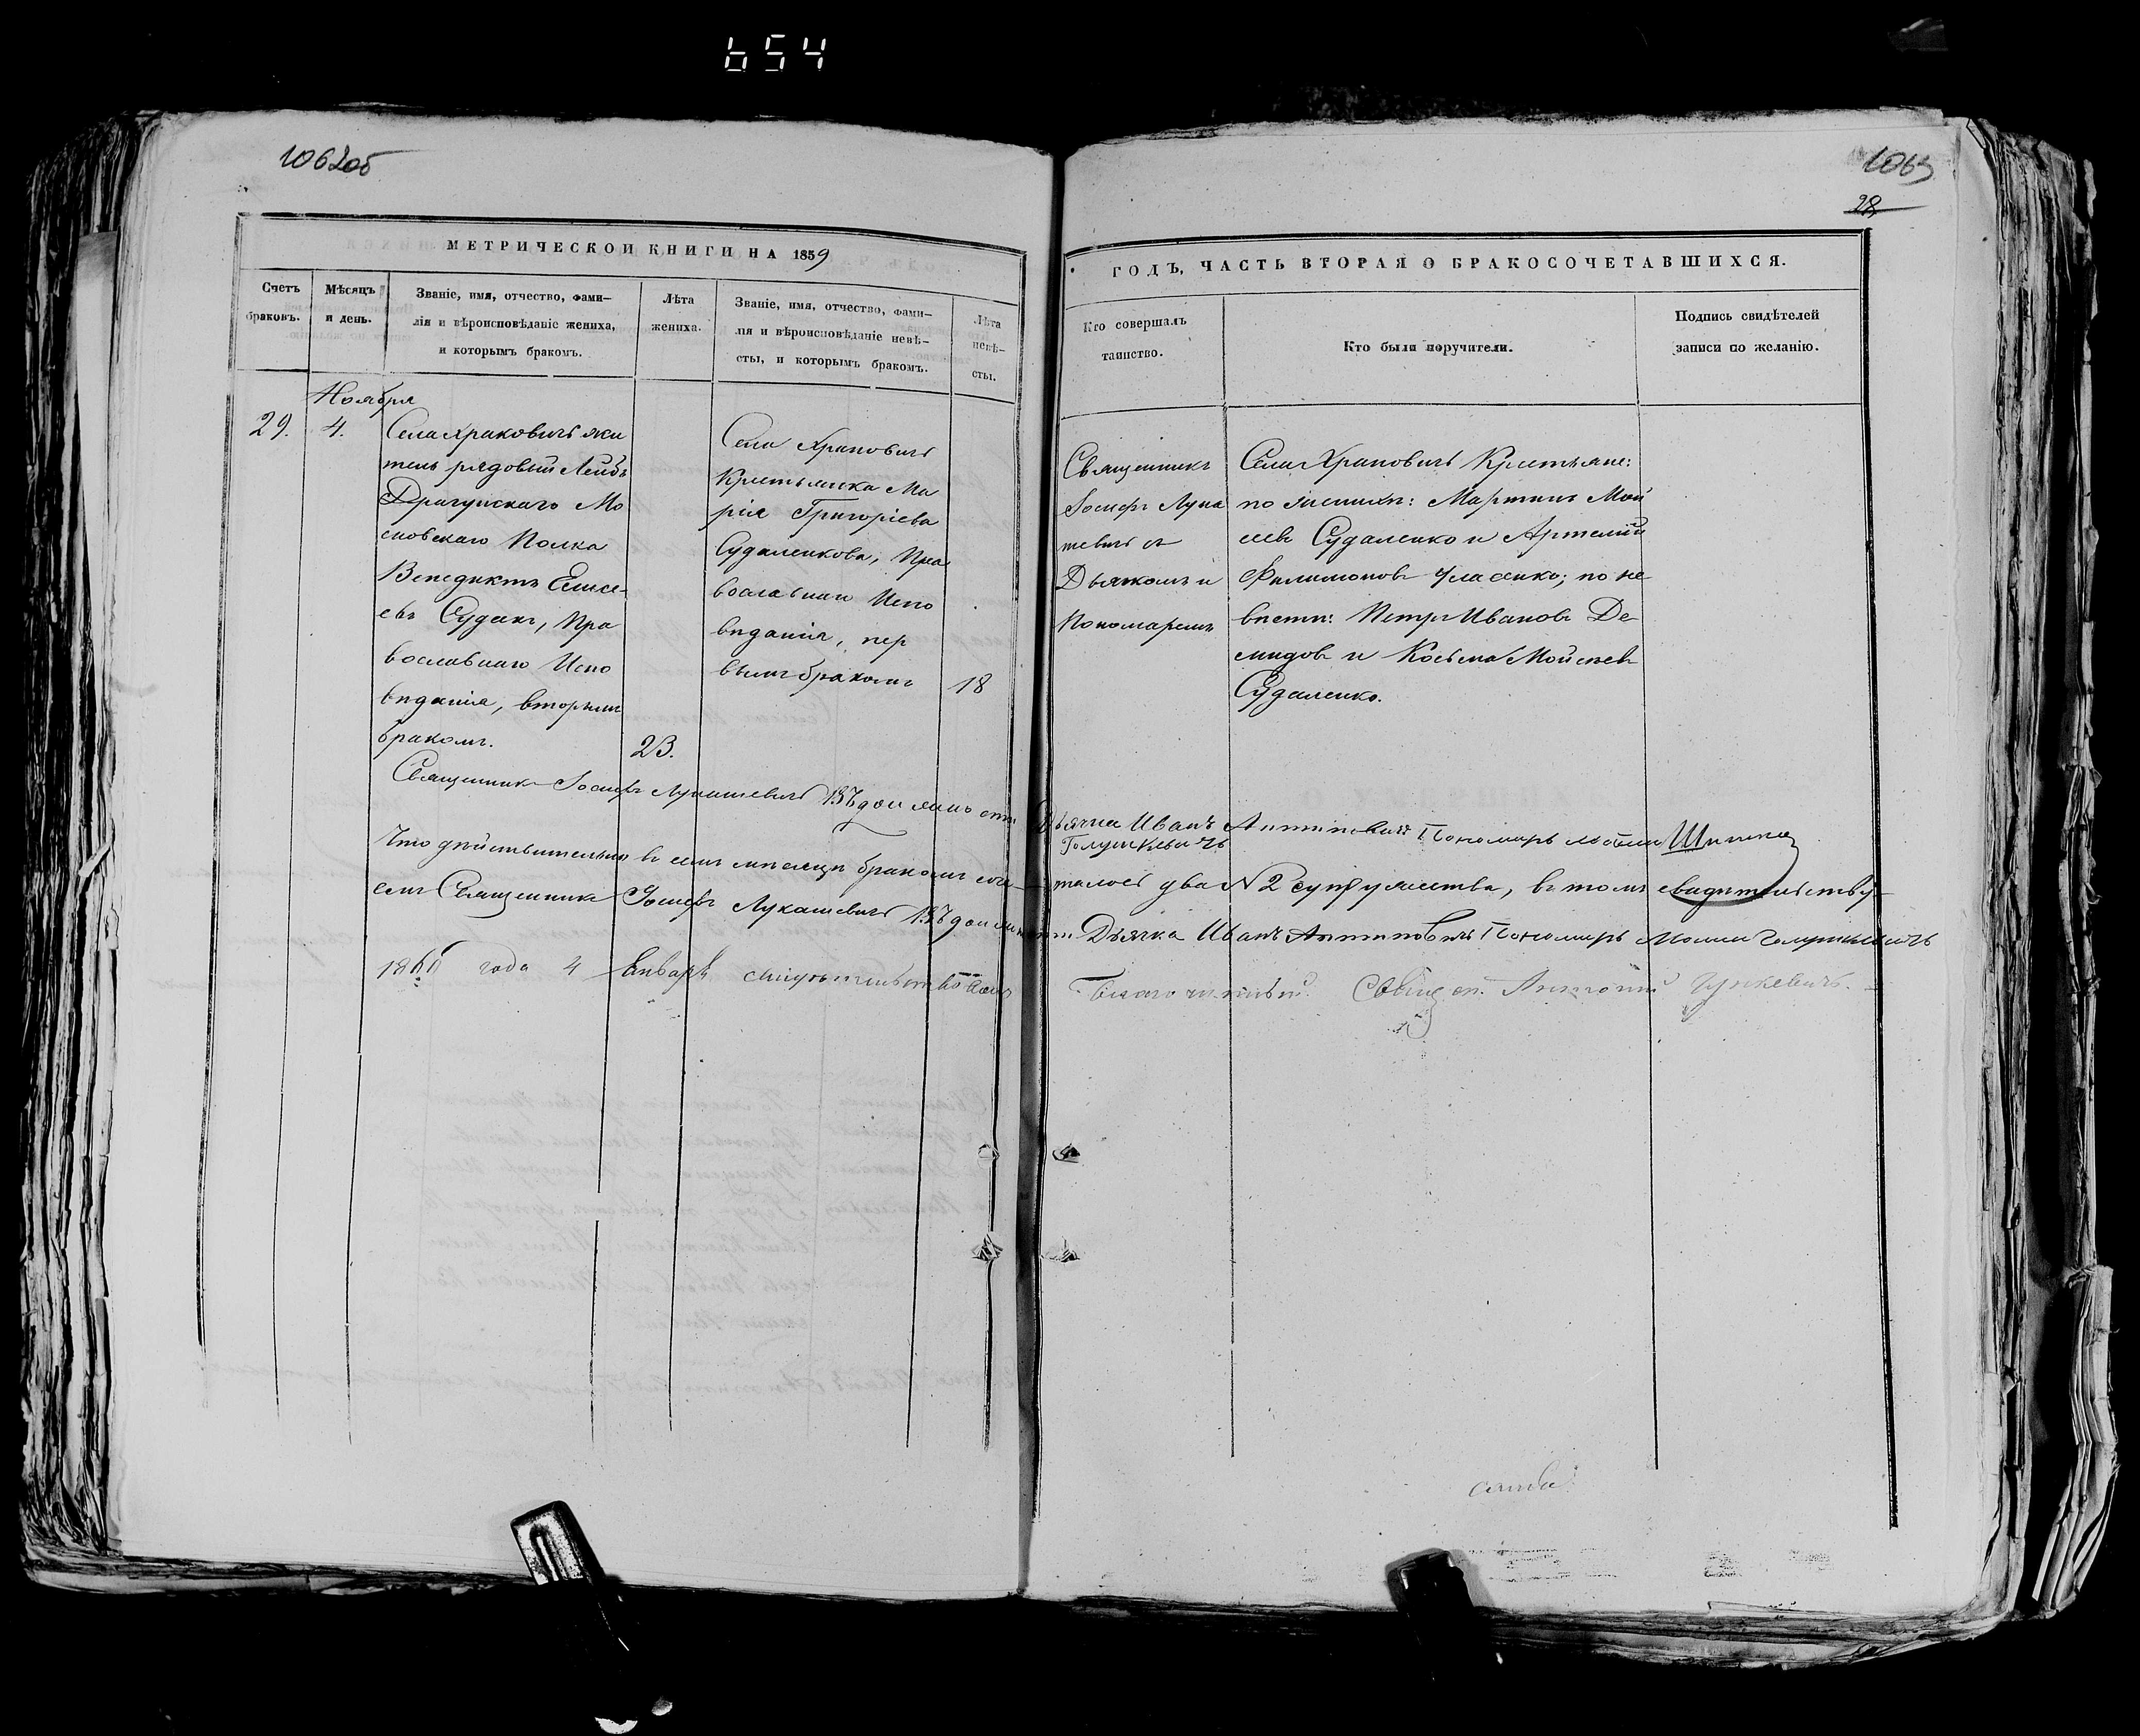 654
1062об
1063
28
МЕТРИЧЕСКОЙ КНИГИ НА 1859
ГОДЪ, ЧАСТЬ ВТОРАЯ О БРАКОСОЧЕТАВШИХСЯ.
Счетъ
браковъ.
Мѣсяцъ
и день.
Званіе, имя, отчество, фами-
лія и вѣроисповѣданіе жениха,
и которымъ бракомъ.
Лѣта
жениха.
Званіе, имя, отчество, фами-
лія и вѣроисповѣданіе невѣ-
сты, и которымъ бракомъ.
Лѣта
невѣ-
сты.
Кто совершалъ
таинство.
Кто были поручители.
Подпись свидѣтелей
записи по желанію.
Ноября
29.
4.
Села Храковичъ жи
тель рядовый Лейбъ
Драгунскаго Мо
сковскаго Полка
Венедиктъ Елисе-
евъ Судакъ, Пра
вославнаго Испо
вѣданія, вторымъ
бракомъ.
23.
Села Храковичъ
Крестьянка Ма
рія Григоріева
Судаленкова, Пра
вославнаго Испо
вѣданія, пер
вымъ бракомъ
18
Священникъ
Іосифъ Лука
шевичъ съ
Дьячкомъ и
Пономаремъ
Села Храковичъ Крестьяне:
по женихѣ: Мартинъ Мой
сеевъ Судаленко и Артемій
Филимоновъ; по не
вѣстѣ: Петръ Ивановъ Де-
мидовъ и Косьма Мойсеевъ
Судаленко.
Священникъ Іосифъ Лукашевичъ
Иванъ Антиповичъ Пономарь
Что дѣйствительно въ семъ мѣсяцѣ бракомъ соче-
талось два № 2 супружества, въ томъ свидѣтельству-
емъ Священникъ Іосифъ Лукашевичъ
Дьячка Иванъ Антиповичъ Пономарь
1860 года 4 Января
Благочинный Священ. Антоній